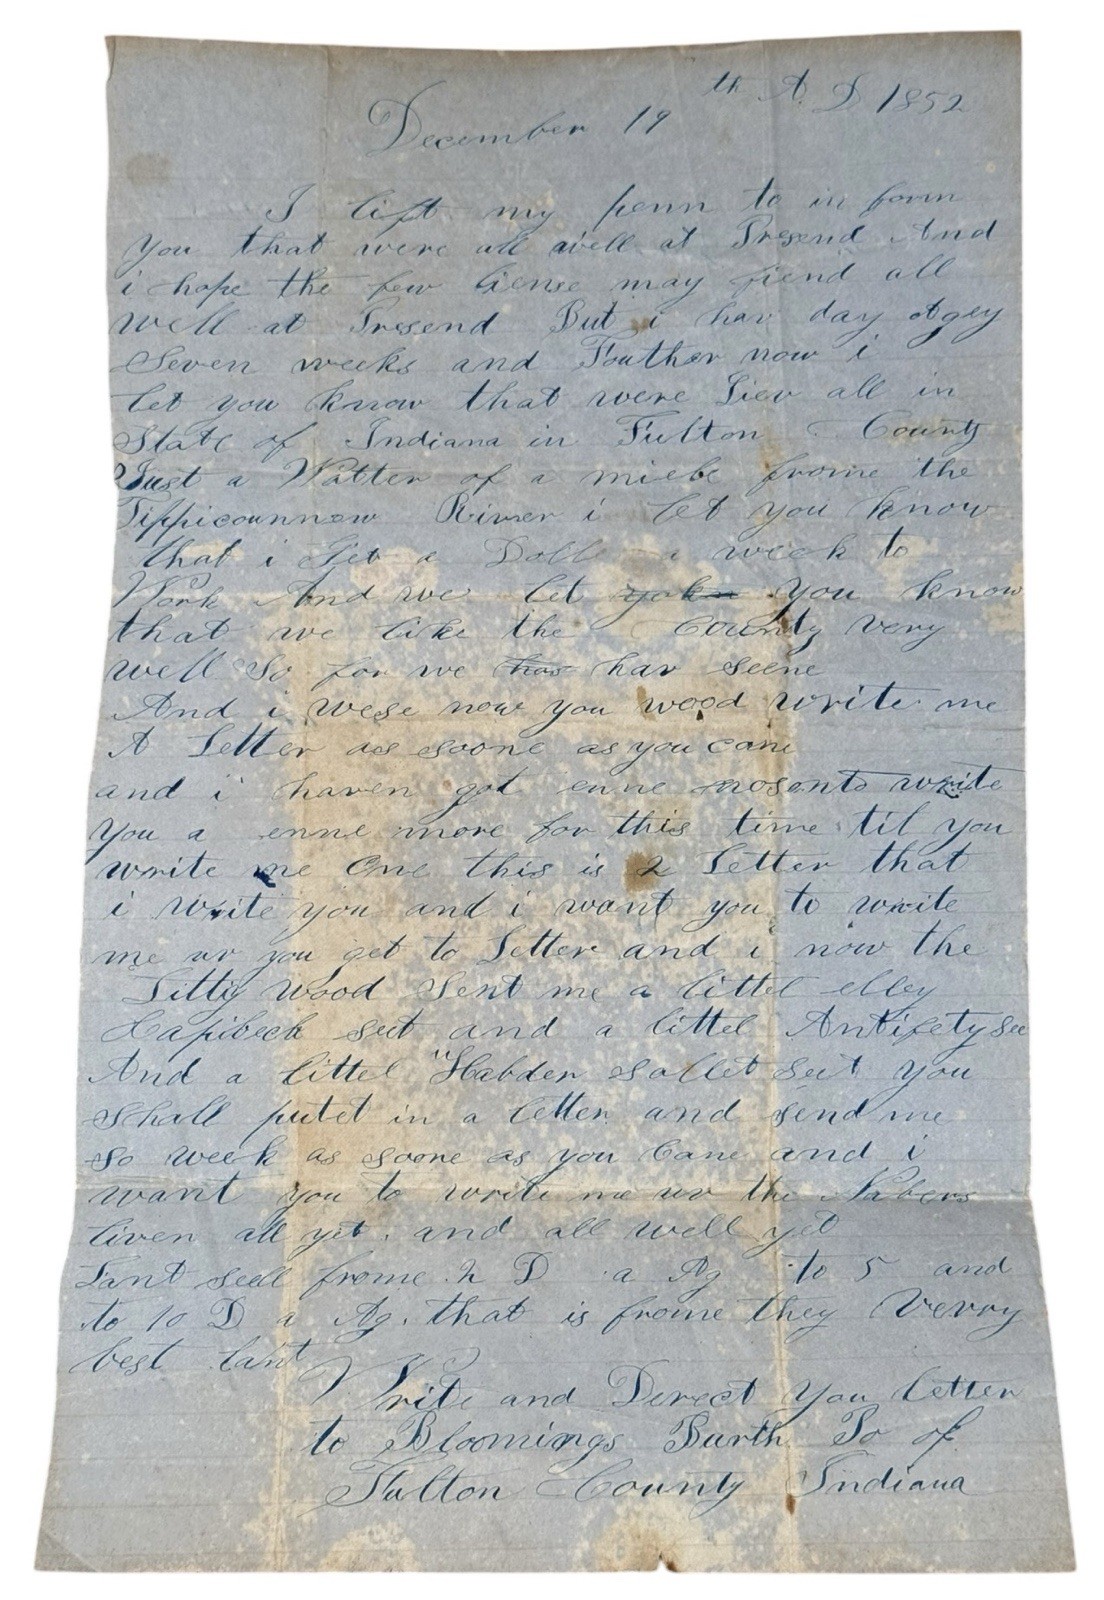 December 19th A. D 1852
I lift my penn to in form
you that were all well at Presend And
i hope the few liense may fiend all
well at Presend But i hav day Agey
Seven weeks and Fouther now i
let you know that were Liev all in
State of Indiana in Fulton County
Just a Watter of a mieles frome the
Tippicounnow River i let you know
that i Get a Doll a week to
Work And we let you know
that we like the County very
well So for we has hav seene
And i wese now you wood write me
A Letter as soone as you cane
and i haven got enne to write
you a enne more for this time til you
write me One this is 2 Letter that
i write you and i want you to write
me uv you get to Letter and i now the
Litty Wood Sent me a littel elley
seet and a littel
And a littel "Habder Sallet Seet you
Shall putet in a letter and send me
So week as soone as you Cane and i
want you to write me uv the Nabers
Liven all yet. and all well yet
Lant sell frome 2 D a Ag to 5 and
to 10 D a Ag. that is frome they Verry
best lant
Write and Derect You letter
to Bloomings Burth Po of
Fulton County Indiana